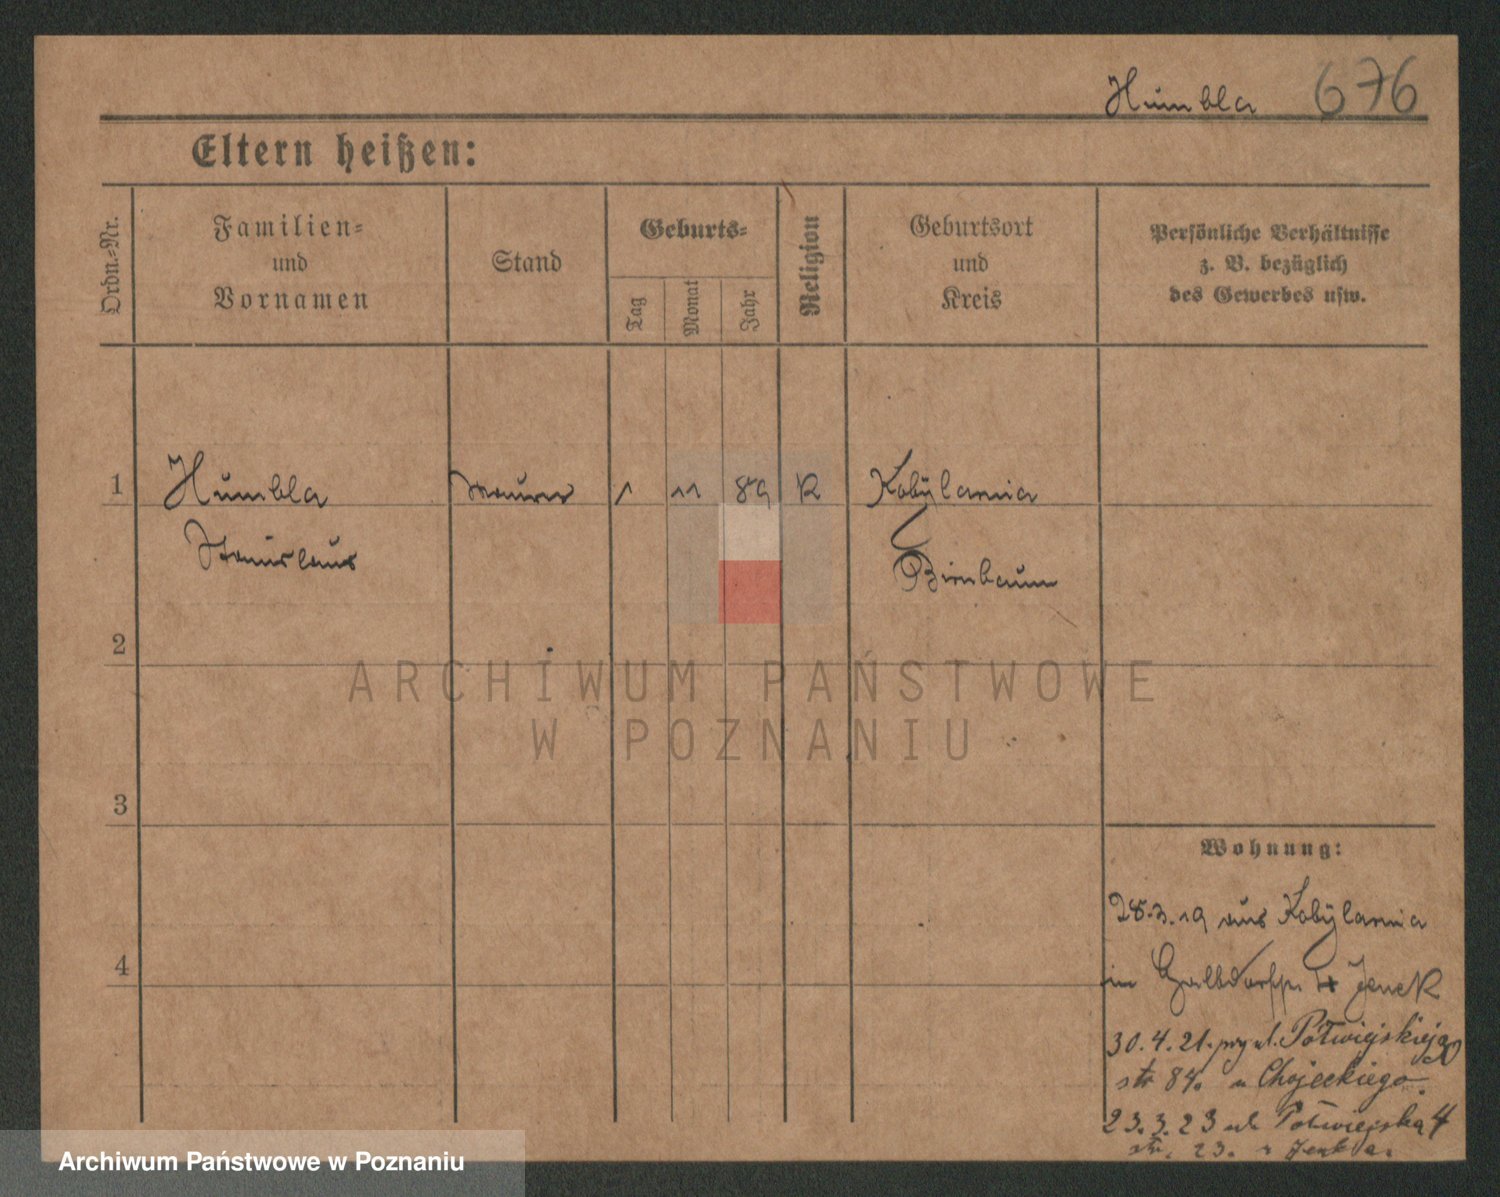 Humbla 676
Eltern heißen:
Ordn.-Nr.
Familien-
und
Vornamen
Stand
Geburts-
Tag
Monat
Jahr
Religion
Geburtsort
und
Kreis
Persönliche Verhältnisse
z. B. bezüglich
des Gewerbes usw.
1 Humbla Maurer 1 11 89 K Kobylarnia
Stanislaus
Birnbaum
2
3
4
ARCHIWUM PAŃSTWOWE
W POZNANIU
Wohnung:
28.3.19 aus Kobylarnia
in
30.4.21. ul. Półwiejskiej
str 84. u Chojeckiego.
23.3.23 ul Półwiejska 4
str. 23.
Archiwum Państwowe w Poznaniu